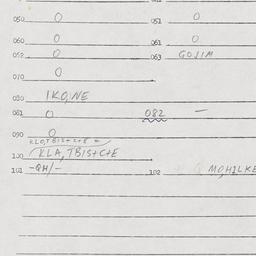 050 0 051 0
060 0 061 0
062 0 063 GOJIM
070 0
080 IKO,NE
081 0 082 —
090 0
KLO,TBIS+C+E
100 KLA, TBIS+C+E
101 -QH/- 102 MO,HILKE